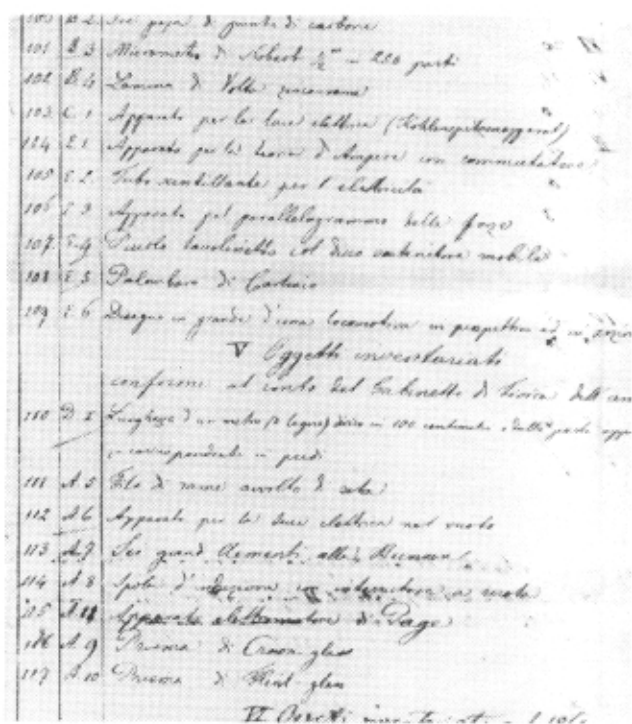 100 B. 2 Sei paja di punte di carbone
101 B. 3 Micrometro di Nobert ½''' in 250 parti
102 B. 4 Lamina di Volta
103 C. 1 Apparato per la luce elettrica (Kohlenspitzenapparat)
104 E. 1 Apparato per la teoria d'Ampere con commutatore
105 E. 2. Tubo scintillante per l'elettricità
106 E. 3 Apparato pel parallelogrammo delle forze
107. E. 4 tavolinetto col disco mobile
108 E. 5 Palombaro di Cartesio
109 E. 6 Disegno in grande d'una locomotiva in prospettiva ed in
V Oggetti inventariati
conformi al conto del Gabinetto di Fisica dell'an
110 D. 1 Lunghezza d'un metro (di legno) diviso in 100 centimetri dalla parte opp
corrispondente in piedi
111 A. 5 Filo di rame avvolto di seta
112 A. 6 Apparato per la luce elettrica nel vuoto
113 A. 7 Sei grandi elementi alla Bunsen
114 A. 8 Spola d'induzione interruttore a
115 A. 11 Apparato elettromotore di Page
116 A. 9 Prisma di Crown-glass
117 A. 10 Prisma di Flint-glass
VI Oggetti